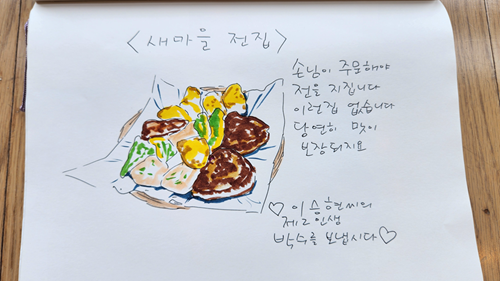 <새마을 전집>
손님이 주문해야
전을 지집니다
이런집 없습니다
당연히 맛이
보장되지요
♡이승현씨의
제2인생
박수를 보냅시다♡